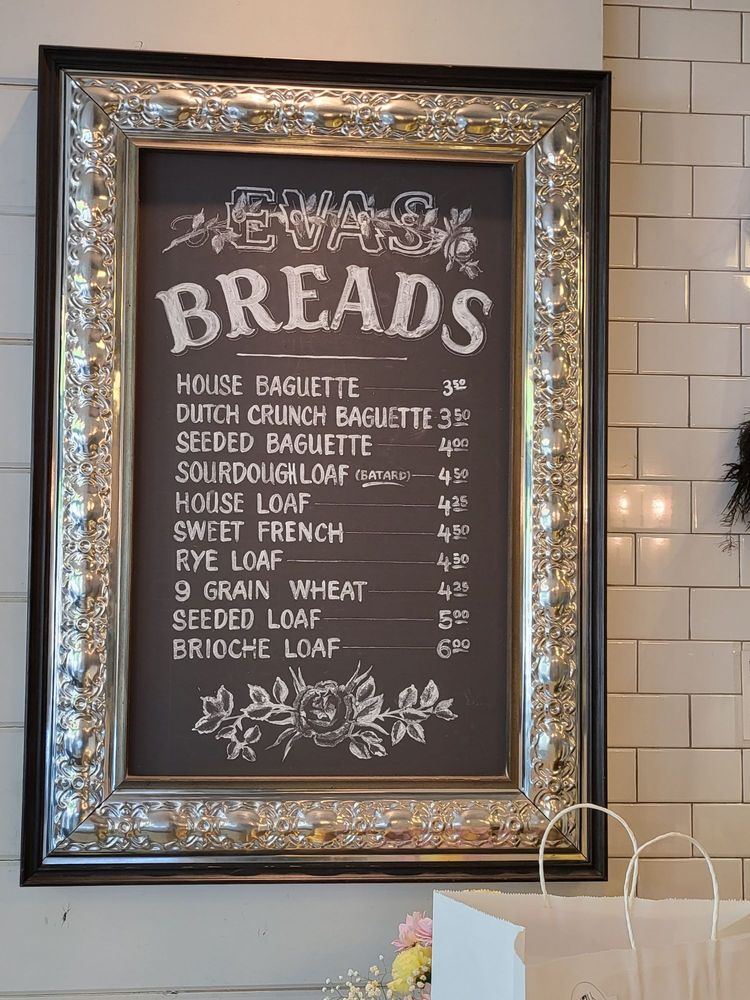 EVAS
BREADS
HOUSE BAGUETTE 3 50
DUTCH CRUNCH BAGUETTE 3 50
SEEDED BAGUETTE 4 00
SOURDOUGH LOAF (BATARD) 4 50
HOUSE LOAF 4 25
SWEET FRENCH 4 50
RYE LOAF 4 50
9 GRAIN WHEAT 4 25
SEEDED LOAF 5 00
BRIOCHE LOAF 6 00